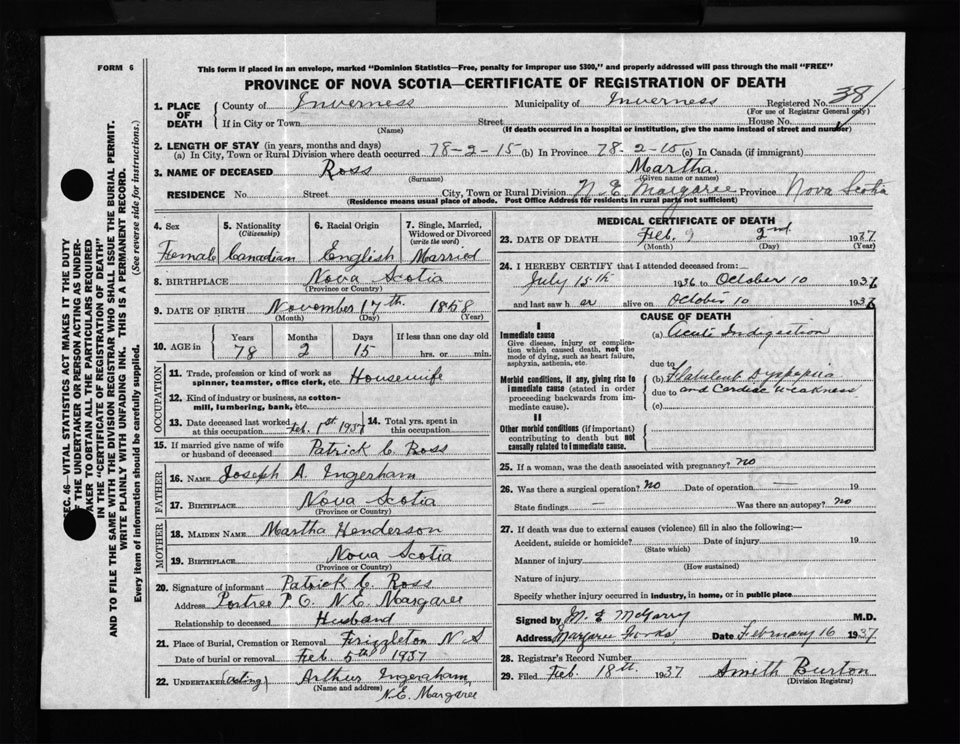 FORM 6
This form if placed in an envelope, marked "Dominion Statistics—Free, penalty for improper use $300," and properly addressed will pass through the mail "FREE"
PROVINCE OF NOVA SCOTIA—CERTIFICATE OF REGISTRATION OF DEATH
1. PLACE OF DEATH County of Inverness Municipality of Inverness Registered No. 38
(For use of Registrar General only)
If in City or Town Street House No.
(Name) (If death occurred in a hospital or institution, give the name instead of street and number)
2. LENGTH OF STAY (in years, months and days)
(a) In City, Town or Rural Division where death occurred 78-2-15 (b) In Province 78-2-15 (c) In Canada (if immigrant)
3. NAME OF DECEASED Ross Martha.
(Surname) (Given name or names)
RESIDENCE No. Street City, Town or Rural Division N E Margaree Province Nova Scotia
(Residence means usual place of abode. Post Office Address for residents in rural parts not sufficient)
4. Sex 5. Nationality (Citizenship) 6. Racial Origin 7. Single, Married, Widowed or Divorced (write the word)
Female Canadian English Married
8. BIRTHPLACE Nova Scotia
(Province or Country)
9. DATE OF BIRTH November 17th 1858
(Month) (Day) (Year)
10. AGE in Years Months Days If less than one day old
78 2 15 hrs. or min.
OCCUPATION
11. Trade, profession or kind of work as spinner, teamster, office clerk, etc. Housewife
12. Kind of industry or business, as cotton-mill, lumbering, bank, etc.
13. Date deceased last worked at this occupation Feb. 1st 1937 14. Total yrs. spent in this occupation
15. If married give name of wife or husband of deceased Patrick C. Ross
FATHER
16. NAME Joseph A. Ingerham
17. BIRTHPLACE Nova Scotia
(Province or Country)
MOTHER
18. MAIDEN NAME Martha Henderson
19. BIRTHPLACE Nova Scotia
(Province or Country)
20. Signature of informant Patrick C. Ross
Address Portree P.O. N.E. Margaree
Relationship to deceased Husband
21. Place of Burial, Cremation or Removal Frizzleton N S
Date of burial or removal Feb. 5th 1937
22. UNDERTAKER (Acting) Arthur Ingraham
(Name and address) N.E. Margaree
MEDICAL CERTIFICATE OF DEATH
23. DATE OF DEATH Feb. 2nd 1937
(Month) (Day) (Year)
24. I HEREBY CERTIFY that I attended deceased from:
July 15th 1936 to October 10 1936
and last saw her alive on October 10 1936
CAUSE OF DEATH
I
Immediate cause
Give disease, injury or complication which caused death, not the mode of dying, such as heart failure, asphyxia, asthenia, etc.
(a) Acute Indigestion
due to
Morbid conditions, if any, giving rise to immediate cause (stated in order proceeding backwards from immediate cause).
(b) Flatulent Dyspepsia
due to and Cardiac Weakness
(c)
II
Other morbid conditions (if important) contributing to death but not causally related to immediate cause.
25. If a woman, was the death associated with pregnancy? no
26. Was there a surgical operation? No Date of operation — 19
State findings — Was there an autopsy? no
27. If death was due to external causes (violence) fill in also the following:—
Accident, suicide or homicide? Date of injury 19
(State which)
Manner of injury
(How sustained)
Nature of injury
Specify whether injury occurred in industry, in home, or in public place
Signed by M. E McGarry M.D.
Address Margaree Forks Date February 16 1937
28. Registrar's Record Number
29. Filed Feb. 18th 1937 Smith Burton
(Division Registrar)
SEC. 46—VITAL STATISTICS ACT MAKES IT THE DUTY
OF THE UNDERTAKER OR PERSON ACTING AS UNDER-
TAKER TO OBTAIN ALL THE PARTICULARS REQUIRED
IN THE "CERTIFICATE OF REGISTRATION OF DEATH"
AND TO FILE THE SAME WITH THE DIVISION REGISTRAR WHO SHALL ISSUE THE BURIAL PERMIT.
WRITE PLAINLY WITH UNFADING INK. THIS IS A PERMANENT RECORD.
Every item of information should be carefully supplied. (See reverse side for instructions.)